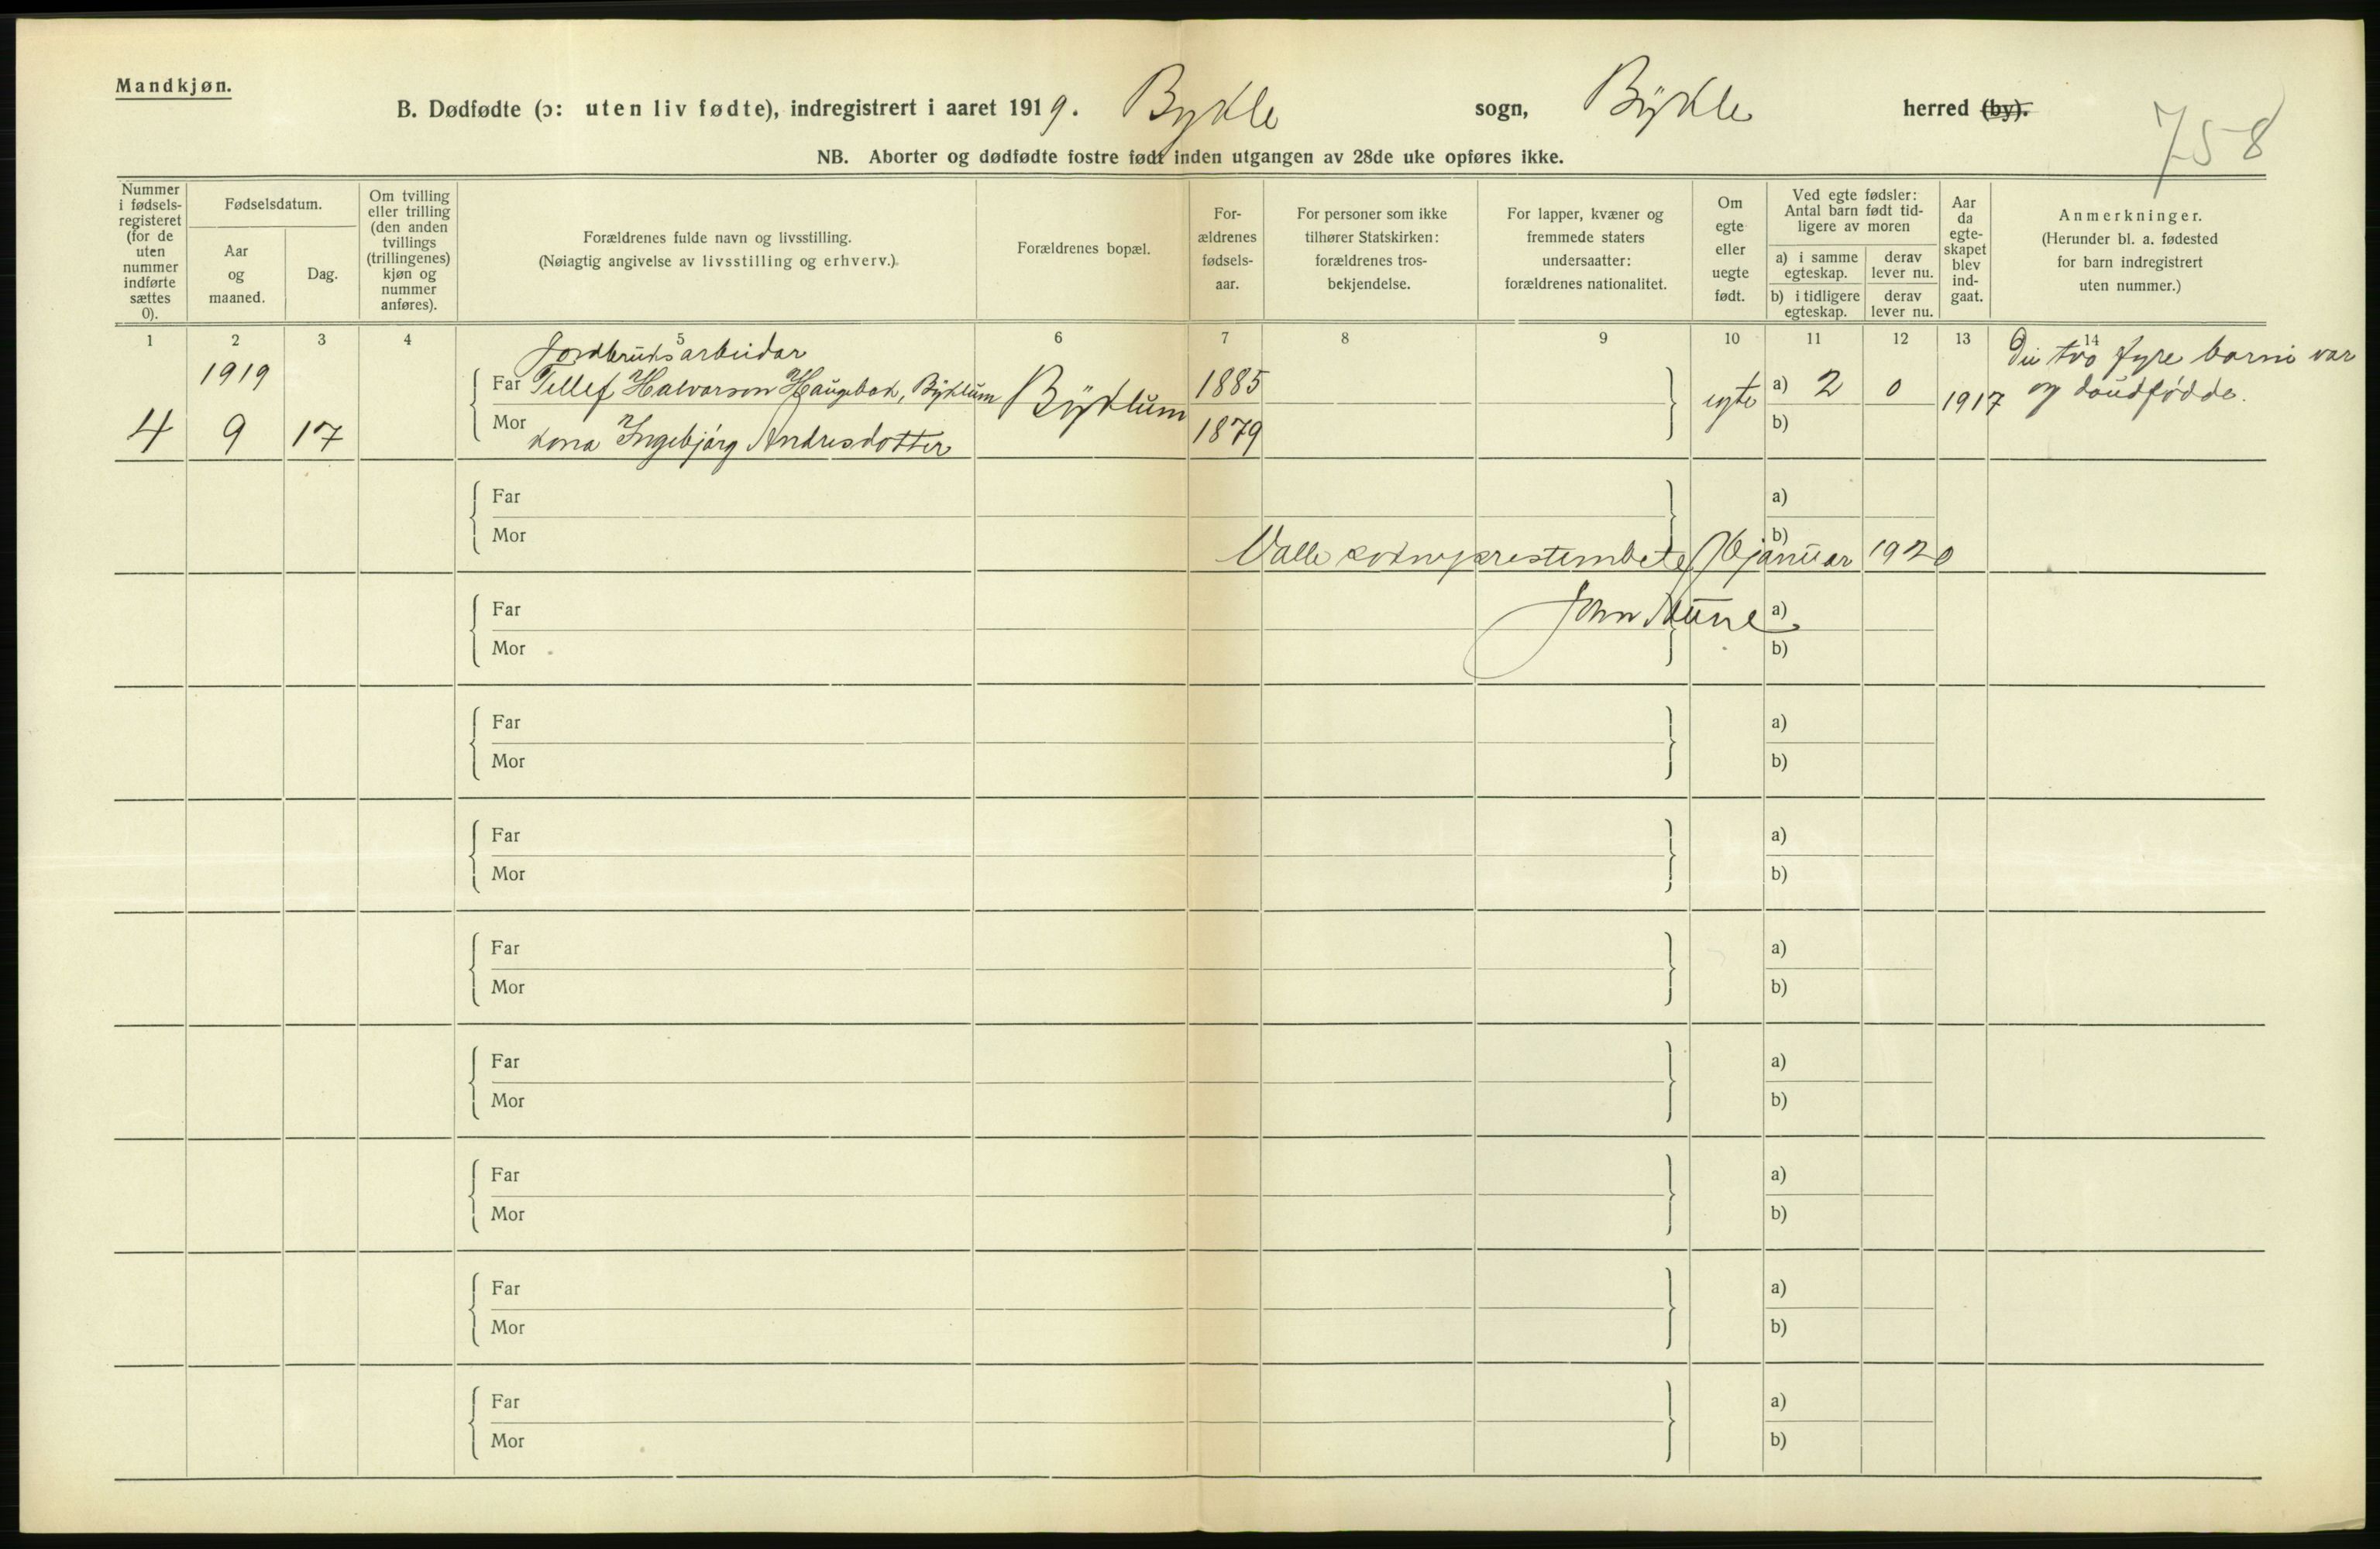 Mandkjøn.
B. Dødfødte (ɔ: uten liv fødte), indregistrert i aaret 1919. Bykle sogn, Bykle herred (by).
758
NB. Aborter og dødfødte fostre født inden utgangen av 28de uke opføres ikke.
Nummer i fødsels-registeret (for de uten nummer indførte sættes 0).
Fødselsdatum.
Aar og maaned.
Dag.
Om tvilling eller trilling (den anden tvillings (trillingenes) kjøn og nummer anføres).
Forældrenes fulde navn og livsstilling.
(Nøiagtig angivelse av livsstilling og erhverv.)
Forældrenes bopæl.
For-ældrenes fødsels-aar.
For personer som ikke tilhører Statskirken: forældrenes tros-bekjendelse.
For lapper, kvæner og fremmede staters undersaatter: forældrenes nationalitet.
Om egte eller uegte født.
Ved egte fødsler: Antal barn født tid-ligere av moren
a) i samme egteskap.
derav lever nu.
b) i tidligere egteskap.
derav lever nu.
Aar da egte-skapet blev ind-gaat.
Anmerkninger.
(Herunder bl. a. fødested for barn indregistrert uten nummer.)
1 2 3 4 5 6 7 8 9 10 11 12 13 14
Jordbruksarbeidar
1919
Far Tellef Halvorson Haugebak, Byklum
Byklum
1885
egte
a) 2 0
1917
Dei tvo fyre borni var
og daudfødde.
4 9 17
Mor kona Ingebjørg Andresdotter
1879
b)
Far
a)
Mor
b)
Valle sokneprestembete, 16 januar 1920
Far
John Aune
a)
Mor
b)
Far
a)
Mor
b)
Far
a)
Mor
b)
Far
a)
Mor
b)
Far
a)
Mor
b)
Far
a)
Mor
b)
Far
a)
Mor
b)
Far
a)
Mor
b)